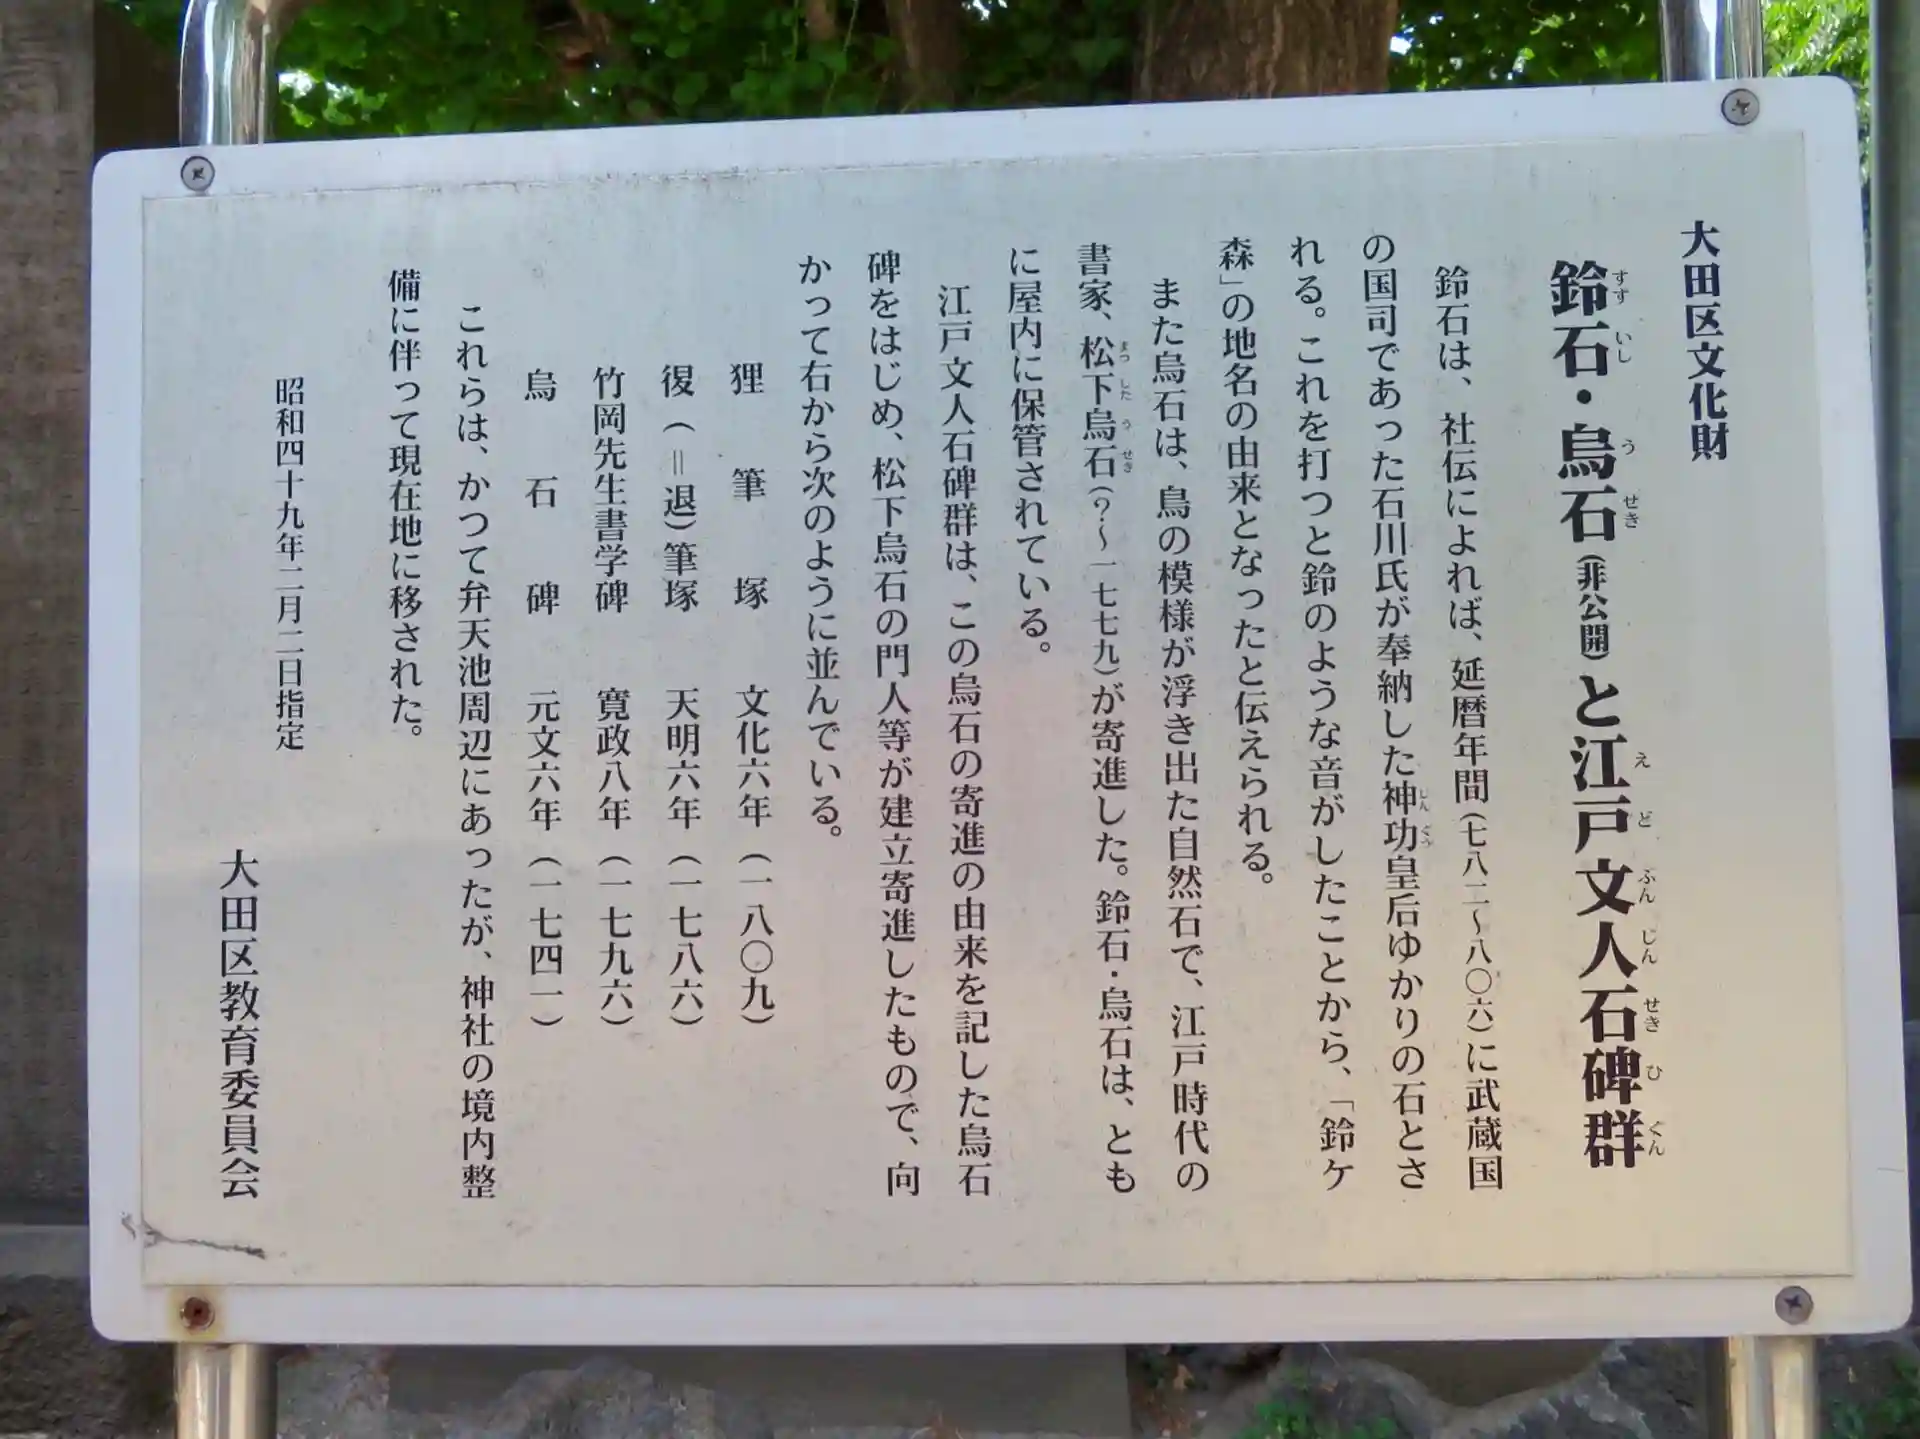 大田区文化財
鈴石・烏石(非公開)と江戸文人石碑群
すず いし う せき え ど ぶん じん せき ひ ぐん
鈴石は、社伝によれば、延暦年間(七八二〜八〇六)に武蔵国
の国司であった石川氏が奉納した神功皇后ゆかりの石とさ
しん ぐう
れる。これを打つと鈴のような音がしたことから、「鈴ケ
森」の地名の由来となったと伝えられる。
また烏石は、鳥の模様が浮き出た自然石で、江戸時代の
書家、松下烏石(?〜一七七九)が寄進した。鈴石・烏石は、とも
まつ した う せき
に屋内に保管されている。
江戸文人石碑群は、この烏石の寄進の由来を記した烏石
碑をはじめ、松下烏石の門人等が建立寄進したもので、向
かって右から次のように並んでいる。
狸筆塚 文化六年(一八〇九)
復(=退)筆塚 天明六年(一七八六)
竹岡先生書学碑 寛政八年(一七九六)
烏石碑 元文六年(一七四一)
これらは、かつて弁天池周辺にあったが、神社の境内整
備に伴って現在地に移された。
昭和四十九年二月二日指定
大田区教育委員会